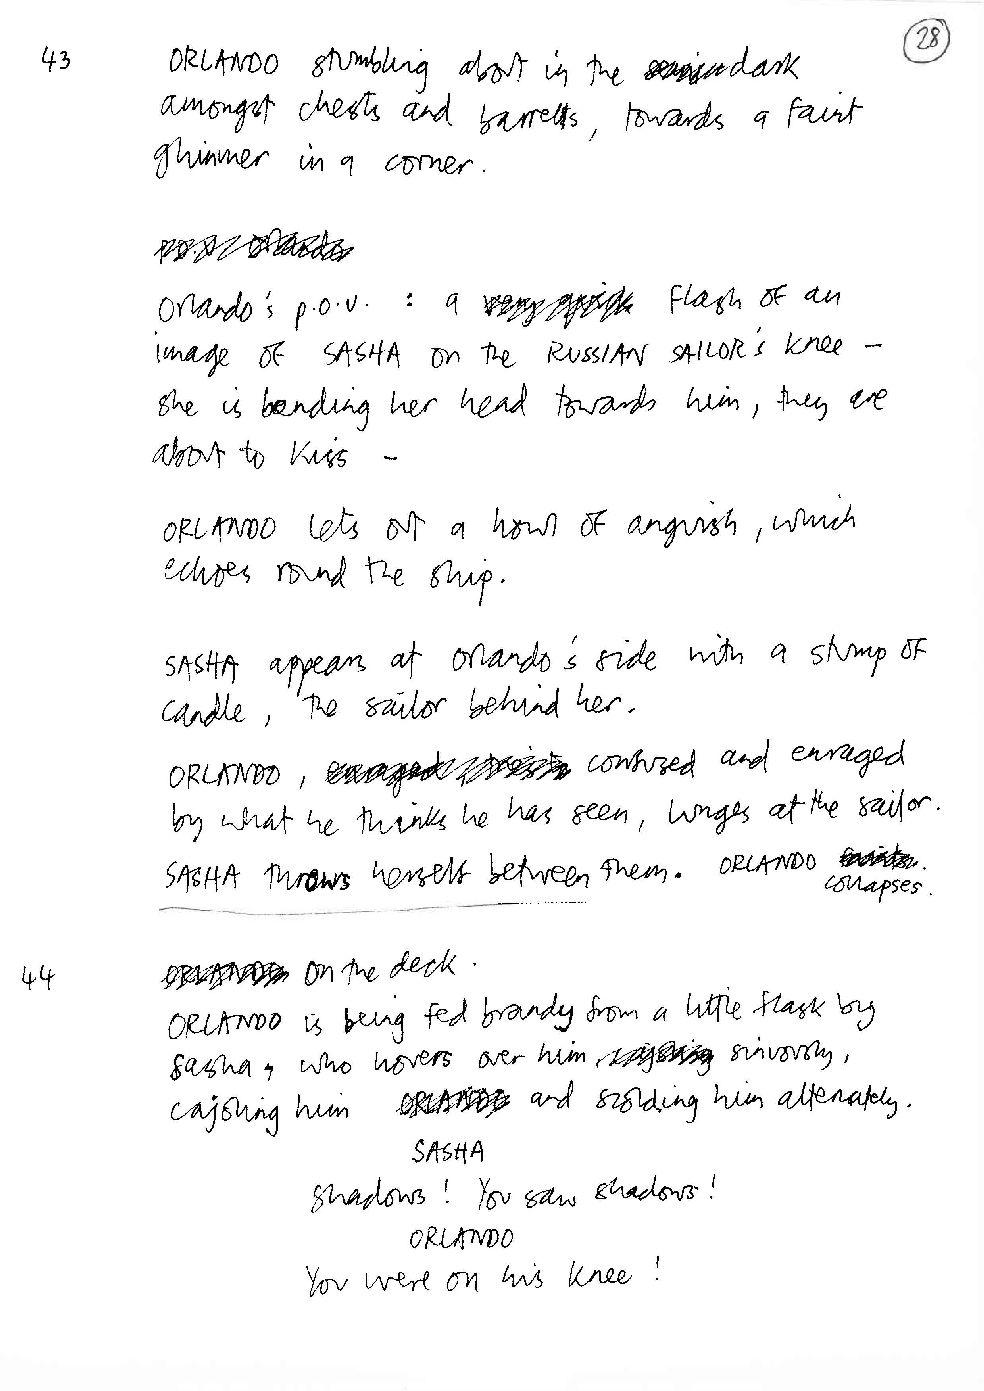 28
43 ORLANDO stumbling about in the dark
amongst chests and barrells, towards a faint
glimmer in a corner.
Orlando's p.o.v. : a very quick flash of an
image of SASHA on the RUSSIAN SAILOR's knee -
she is bending her head towards him, they are
about to kiss -
ORLANDO lets out a howl of anguish, which
echoes round the ship.
SASHA appears at Orlando's side with a stump of
candle, the sailor behind her.
ORLANDO, confused and enraged
by what he thinks he has seen, lunges at the sailor.
SASHA throws herself between them. ORLANDO faints.
collapses.
44 ORLANDO on the deck.
ORLANDO is being fed brandy from a little flask by
Sasha, who hovers over him, sinuously,
cajoling him ORLANDO and scolding him alternately.
SASHA
Shadows! You saw shadows!
ORLANDO
You were on his knee!